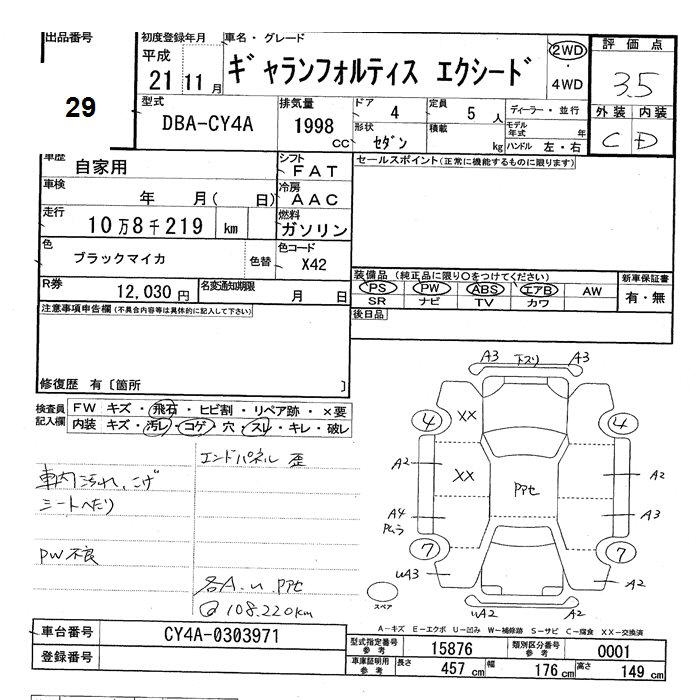 出品番号
29
初度登録年月
平成
21 11 月
車名・グレード
ギャランフォルティス エクシード
2WD
・
4WD
評価点
3.5
外装 内装
C D
型式
DBA-CY4A
排気量
1998 CC
ドア 4
定員 5 人
形状 セダン
積載 kg
ディーラー・並行
モデル年式 年
ハンドル 左・右
車歴 自家用
シフト FAT
車検 年 月( 日)
冷房 AAC
走行 10万8千219 km
燃料 ガソリン
色 ブラックマイカ 色替
色コード X42
R券 12,030 円
名変通知期限 月 日
セールスポイント(正常に機能するものに限ります)
装備品(純正品に限り○をつけてください)
PS PW ABS エアB AW
SR ナビ TV カワ
新車保証書
有・無
後日品
注意事項申告欄(不具合内容等は具体的に記入して下さい)
修復歴 有〔箇所 〕
検査員記入欄
FW キズ・飛石・ヒビ割・リペア跡・×要
内装 キズ・汚レ・コゲ・穴・スレ・キレ・破レ
車内汚れ、こげ
シートへたり
PW不良
エンドパネル 歪
各A.u.PPセ
108.220km
A3 下スリ A3
4 XX 4
A2 XX A2
PPセ
A4 A3
PCムラ
7 7
uA3 uA2 A2
スペア
A-キズ E-エクボ U-凹み W-補修跡 S-サビ C-腐食 XX-交換済
車台番号 CY4A-0303971
登録番号
型式指定番号 参考 15876
類別区分番号 参考 0001
車庫証明用 参考 長さ 457 cm 幅 176 cm 高さ 149 cm